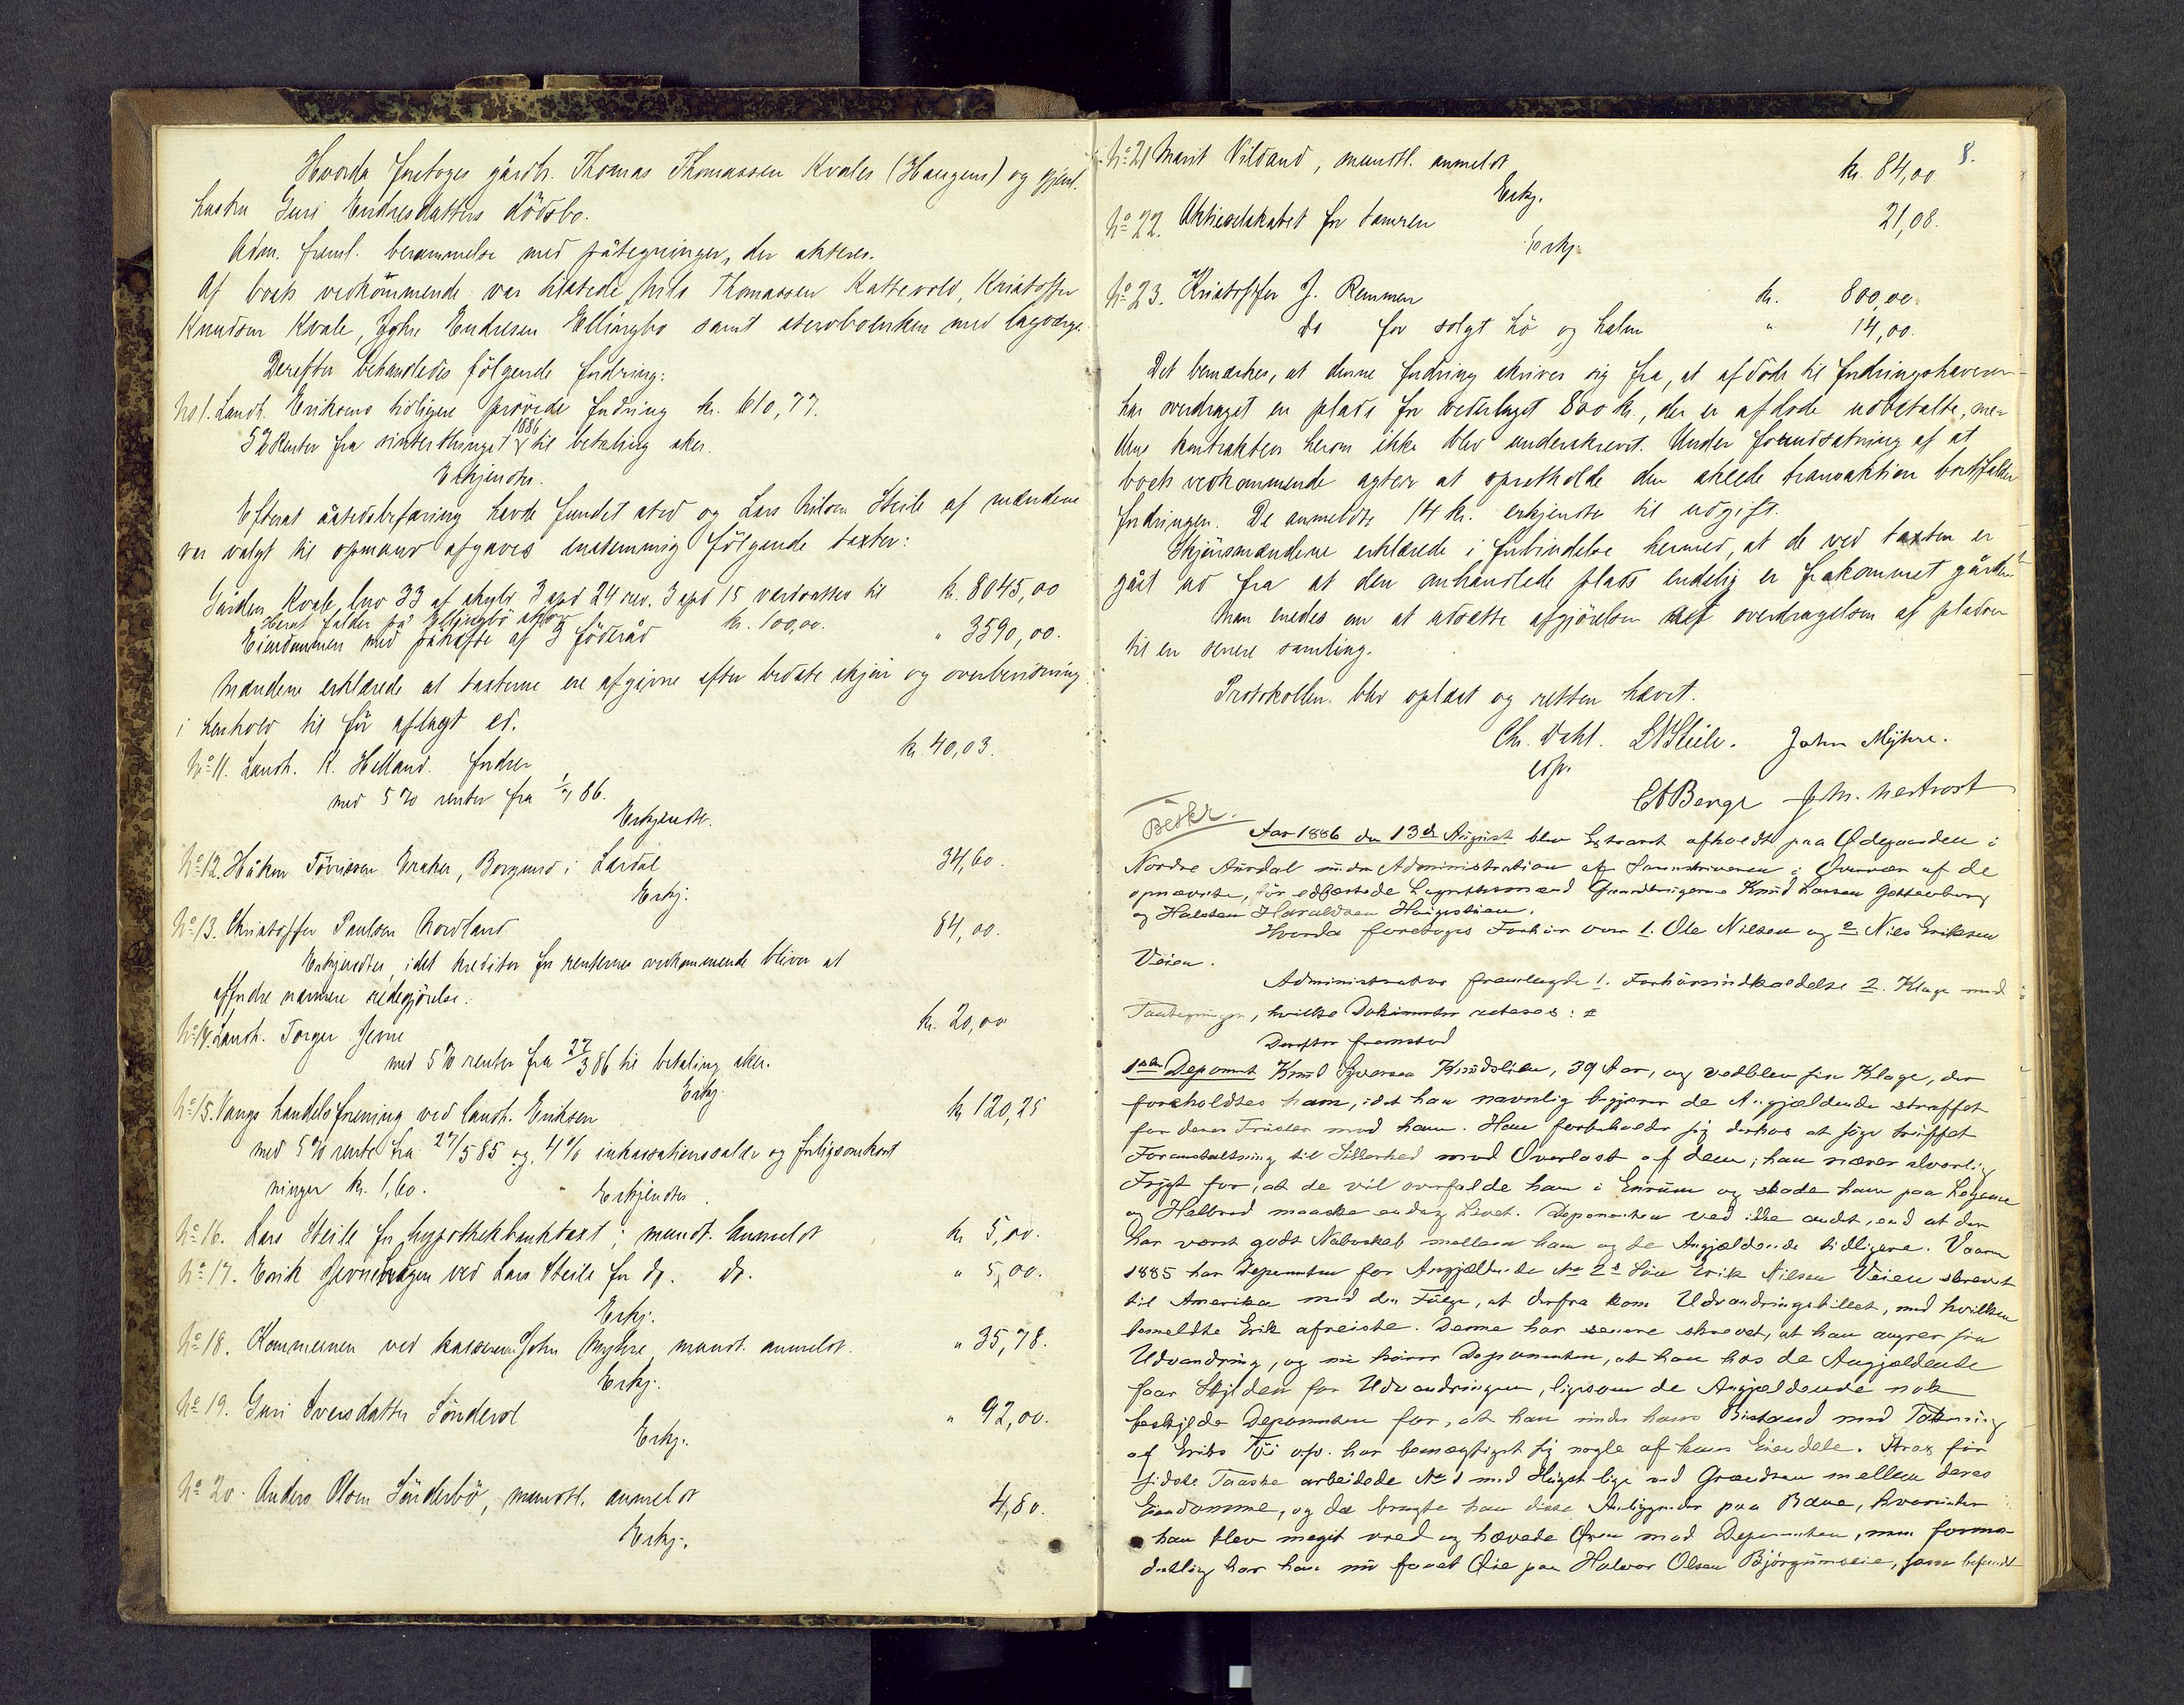 Hvorda foretoges gårdbr. Thomas Thomassen Kvales (Haugens) og gjenl.
hustru Guri Endresdatters dödsbo.
Adm. freml. berammelse med påtegninger, der akteres.
Af boets vedkommende var tilstede Nils Thomassen Kattevold, Kristoffer
Knudsen Kvale, John Endresen Ellingbo samt sterboenken med lagverge.
Derefter behandledes fölgende fordring:
No 1. Landh. Eriksens tidligere prövede fordring kr. 610,77.
5% Renter fra vinterthinget 1886 til betaling sker.
Erkjendtes.
Efterat åstedsbefaring havde fundet sted og Lars Nilsen Steile af mændene
var valgt til opmand afgaves enstemmig fölgende taxter:
Gården Kvale, lno 33 af skyld 3 spd 24 rev. 3 spd 15 værdsattes til kr. 8045,00
Heraf falder på Ellingbö kr. 100,00.
Eiendommen med påhæfte af 3 föderåd " 3590,00.
Mændene erklærede at taxterne ere afgivne efter bedste skjön og overbevisning
i henhold til för aflagt ed.
No 11. Landh. K. Helland fordrer kr. 40,03.
med 5% renter fra 1/1 86.
Erkjendtes.
No 12. Håkon Eraker, Borgund i Lærdal 34,60.
Erkj.
No 13. Christoffer Paulsen Nordland 84,00.
Erkjendtes, idet kreditor for renternes vedkommende bliver at
affordre nærmere redegjörelse.
No 14. Landh. Torger Jevne kr. 20,00
med 5% renter fra 27/3 86 til betaling sker.
Erkj.
No 15. Vangs handelsforening ved landh. Eriksen kr 120,25
med 5% rente fra 27/5 85 og 4% inkassationssalær og forligsomkost
ninger kr. 1,60. Erkjendtes.
No 16. Lars Steile for hypothekbanktaxt; mundt. anmeldt kr 5,00.
No 17. Erik Jevnehagen ved Lars Steile for do. do. " 5,00.
Erkj.
No 18. Kommunen ved kasserer John Myhre, mundt. anmeldt. " 35,78.
Erkj.
No 19. Guri Iversdatter " 92,00.
Erkj.
No 20. Anders Olsen Sönderbö, mundtl. anmeldt 4,80.
Erkj.
8.
No 21 Marit Vildand, mundtl. anmeldt kr. 84,00
Erkj.
No 22. Aktieselskabet for 21,08.
Erkj.
No 23. Kristoffer J. Remmen kr. 800,00.
do for solgt hö og halm " 14,00.
Det bemærkes, at denne fordring skriver sig fra, at afdöde til fordringshaveren
har overdraget en plads for vederlaget 800 kr., der er afdöde udbetalte, men
uden kontrakten herom ikke blev underskrevet. Under forudsætning af at
boets vedkommende agter at opretholde den skeede transaktion bortfalder
fordringen. De anmeldte 14 kr. erkjendtes til udgift.
Skjönsmændene erklærede i forbindelse hermed, at de ved taxten er
gået ud fra at den omhandlede plads endelig er frakommet gården.
Man enedes om at udsætte afgjörelsen af overdragelsen af pladsen
til en senere samling.
Protokollen blev oplæst og retten hævet.
Chr. Dahl. LNSteile. John Myhre.
edsv.
EOBerge
Beskr.
Aar 1886 den 13de August blev Extraret afholdt paa Ødegaarden i
Nordre Aurdal under Administration af Sorenskriveren i Overvær af de
opnævnte, för edfæstede Lagrettesmænd Gaardbrugerne Knud Larsen Gottenborg
og Halsten Haraldsen Haugstien.
Hvorda foretoges Forhör over 1. Ole Nilsen og 2. Nils Eriksen
Veien.
Administrator fremlagde 1. Forhörsindkaldelse 2. Klage med
Paategninger, hvilke Dokumenter acteres:
Derefter fremstod
1ste Deponent Knud Iversen Knudslien, 39 Aar, og vedblev sin Klage, der
foreholdtes ham, idet han navnlig begjærer de Angjældende straffet
for deres Trusler mod ham. Han forbeholder sig derhos at söge truffet
Foranstaltning til Sikkerhed mod Overlast af dem; han nærer alvorlig
Frygt for, at de vil overfalde ham i Enrum og skade ham paa Legeme
og Helbred maaske endog Livet. Deponenten ved ikke andet, end at der
har været godt Naboskab mellem ham og de Angjældende tidligere. Vaaren
1885 har Deponenten for Angjældende No 2s Sön Erik Nilsen Veien skrevet
til Amerika med den Fölge, at derfra kom Udvandringsbillet, med hvilken
bemeldte Erik afreiste. Denne har senere skrevet, at han angrer sin
Udvandring, og nu hörer Deponenten, at han hos de Angjældende
faar Skylden for Udvandringen, ligesom de Angjældende nok
beskylde Deponenten for, at han under hans Bistand med Pakning
af Eriks Töi osv. har bemægtiget sig nogle af hans Eiendele. Strax för
sidste Paaske arbeidede No 1 med Hugst lige ved Grændsen mellem deres
Eiendomme, og da bragte han disse Anliggender paa Bane, hvorunder
han blev meget vred og hævede Øxen mod Deponenten, men formo-
dentlig har han nu faaet Øie paa Halvor Olsen Björgumseie, som befandt